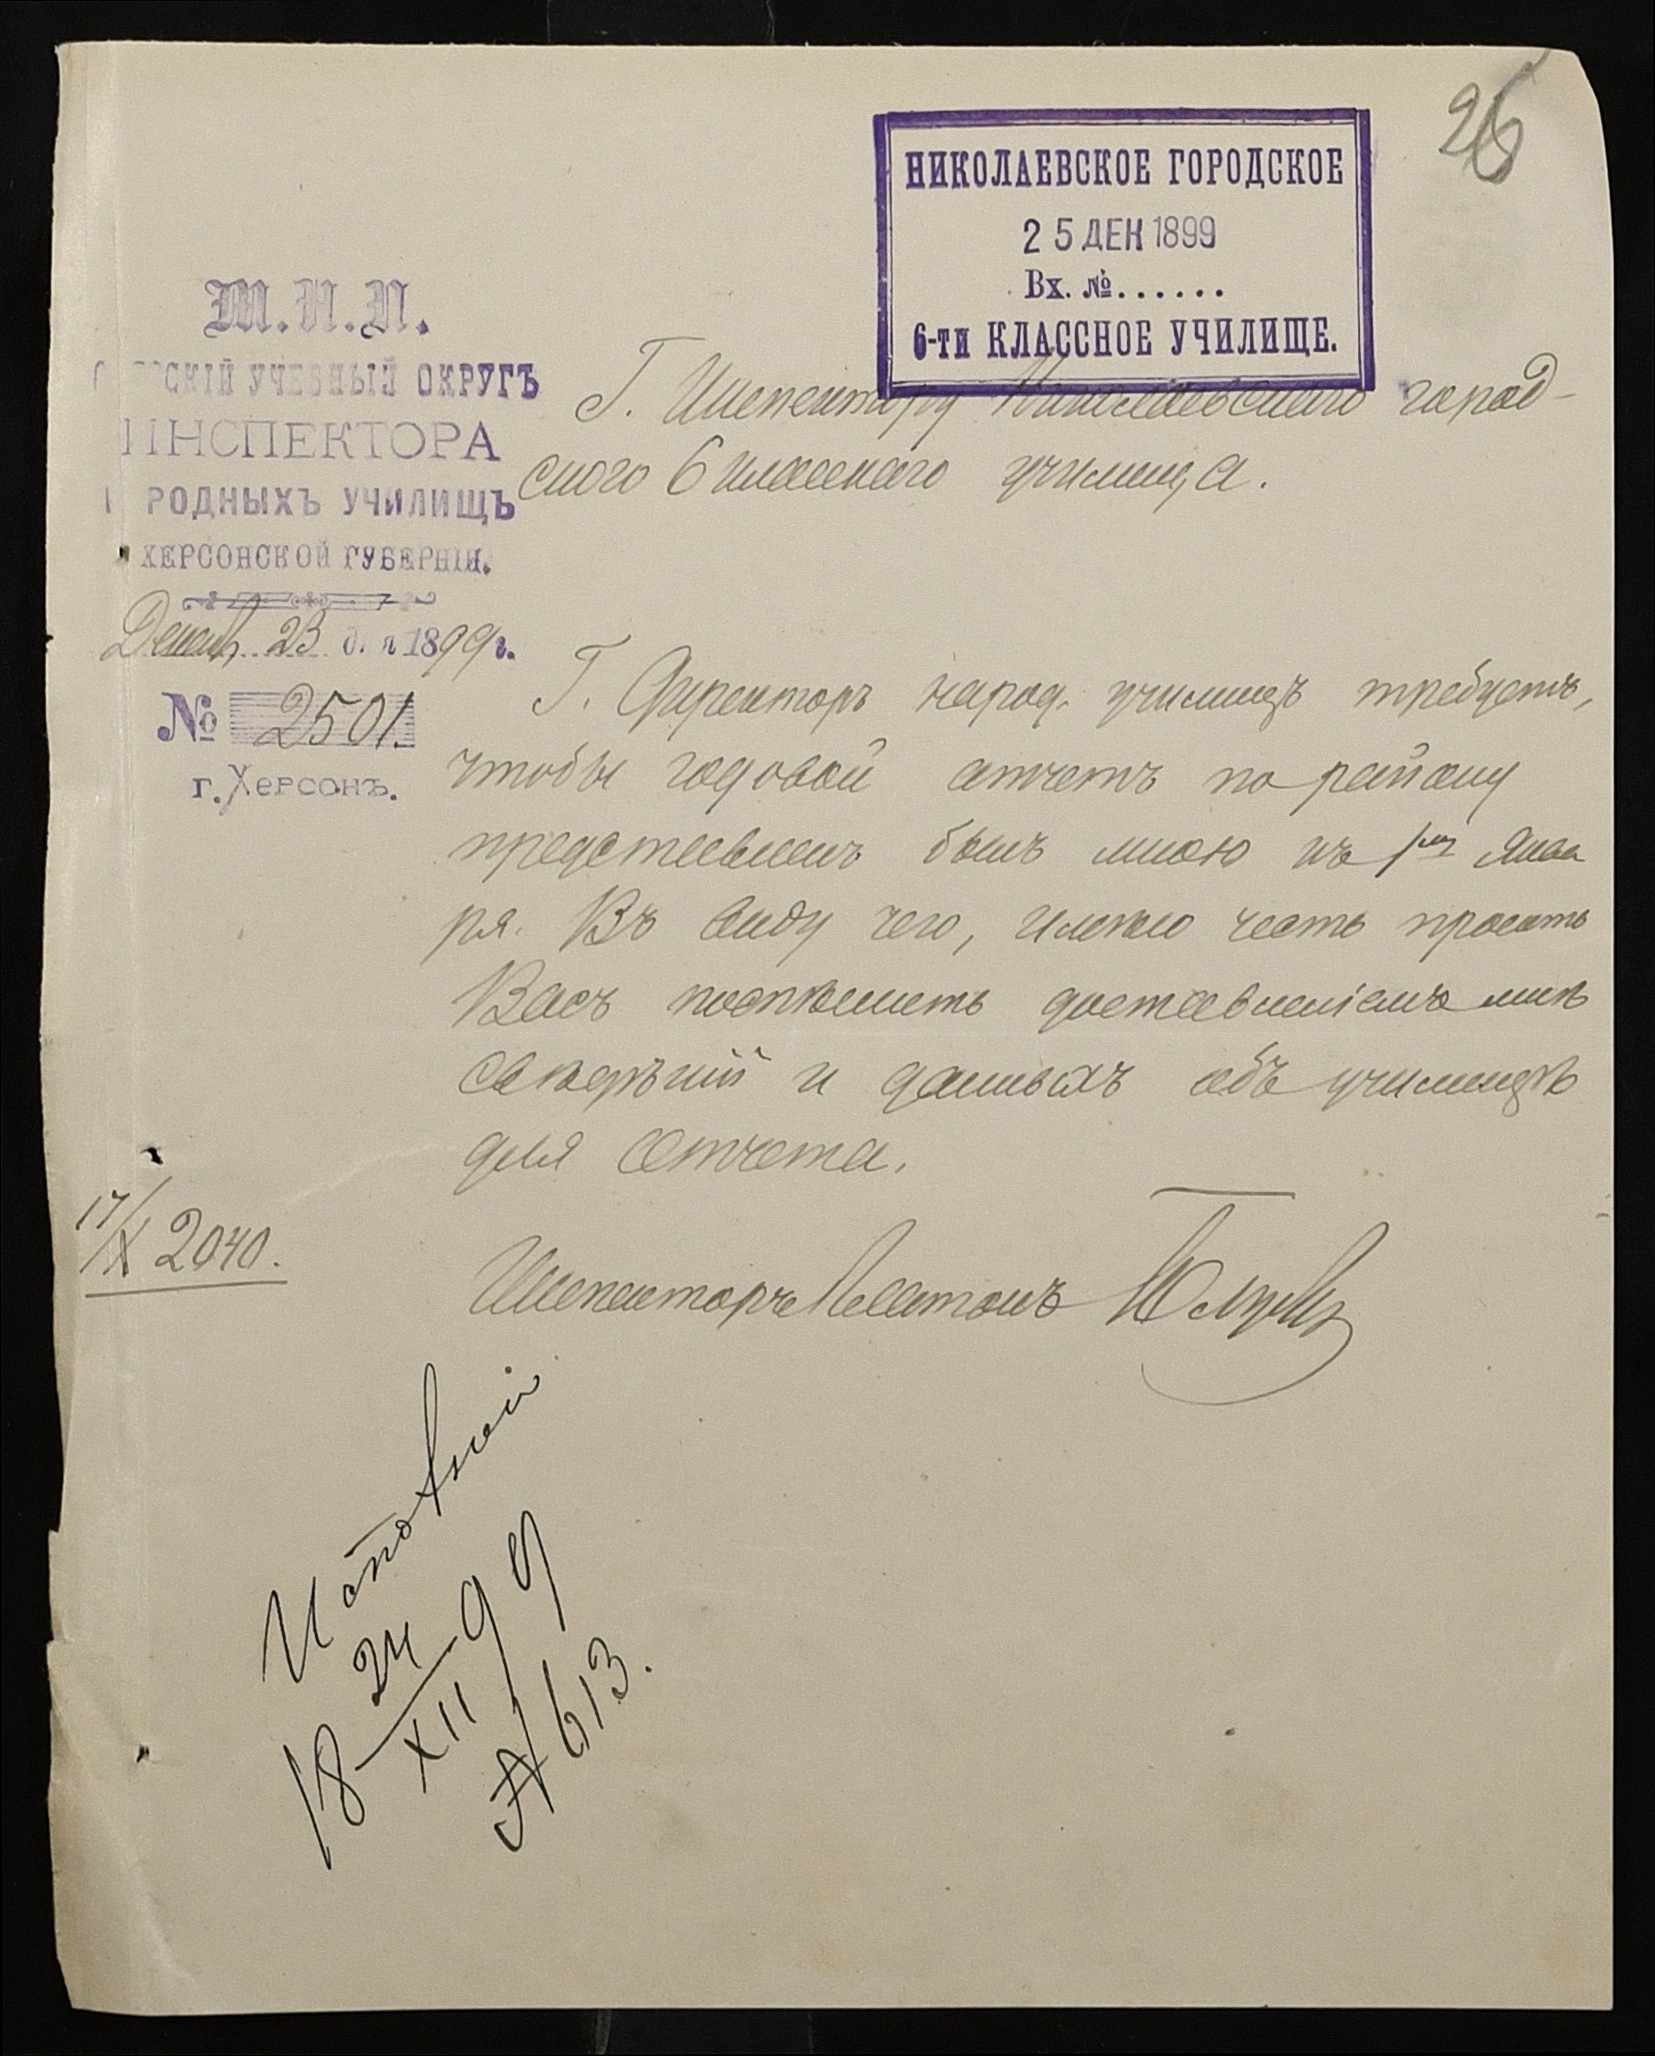 26
НИКОЛАЕВСКОЕ ГОРОДСКОЕ
25 ДЕК 1899
Вх. №......
6-ти КЛАССНОЕ УЧИЛИЩЕ.
М.Н.П.
УЧЕБНЫЙ ОКРУГЪ
ИНСПЕКТОРА
РОДНЫХЪ УЧИЛИЩЪ
ХЕРСОНСКОЙ ГУБЕРНІИ.
Декаб. 23 д. я 1899 г.
№ 2501.
г. Херсонъ.
Г. Инспектору Николаевскаго город-
ского 6 класснаго училища.
Г. Директоръ народ. училищъ требуетъ,
чтобы годовой отчетъ по району
представленъ былъ мною къ 1му Янва
ря. Въ виду чего, имѣю честь просить
Васъ поспѣшить доставленіемъ мнѣ
свѣдѣній и данныхъ объ училищѣ
для отчета.
Инспекторъ
17/X 2040.
18 24/XII 99
№ 613.